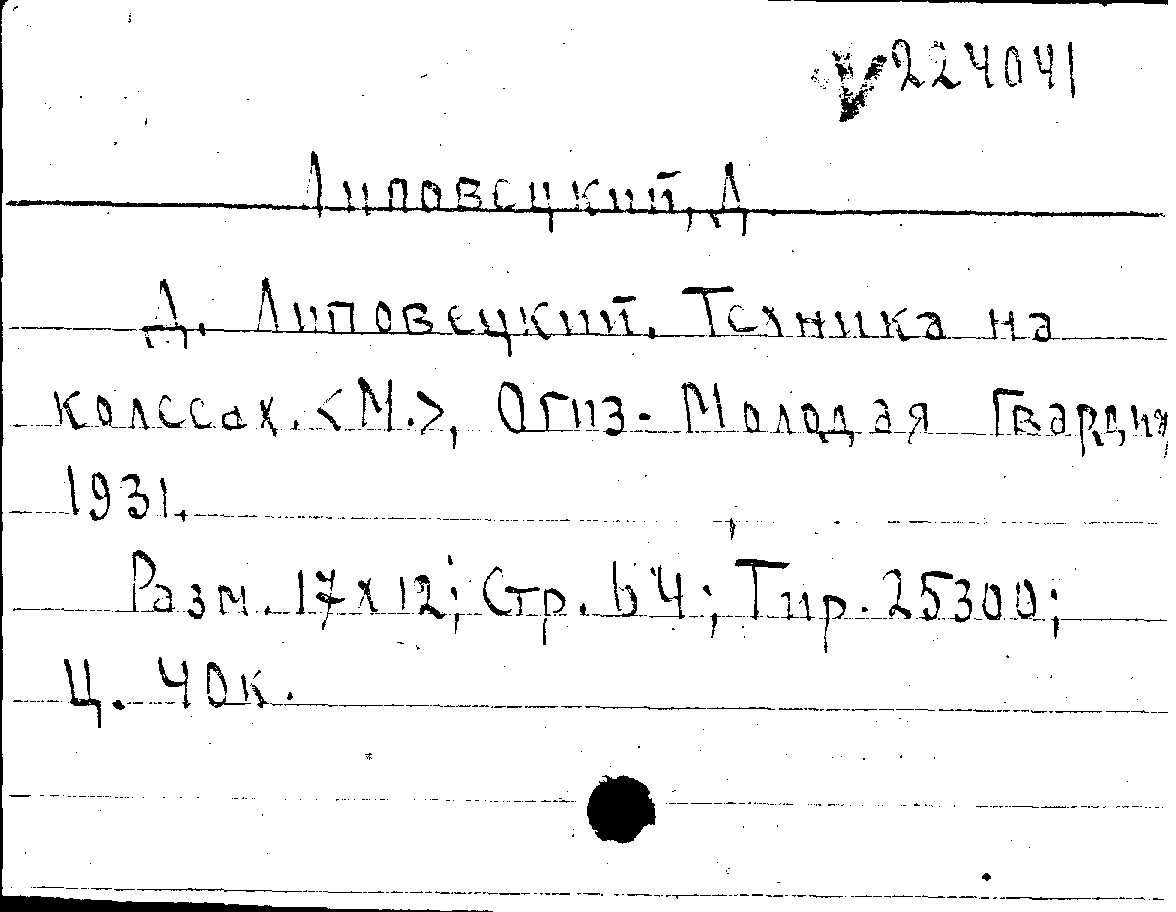 V 224041
Липовецкий, Д
Д. Липовецкий. Техника на
колесах. <М.>, Огиз- Молодая Гвардия
1931.
Разм. 17х12; Стр. 64; Тир. 25300;
Ц. 40к.